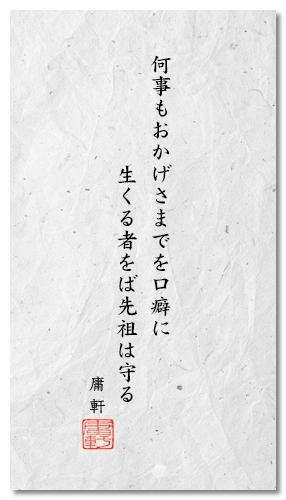 何事もおかげさまでを口癖に
生くる者をば先祖は守る
庸軒
庸軒